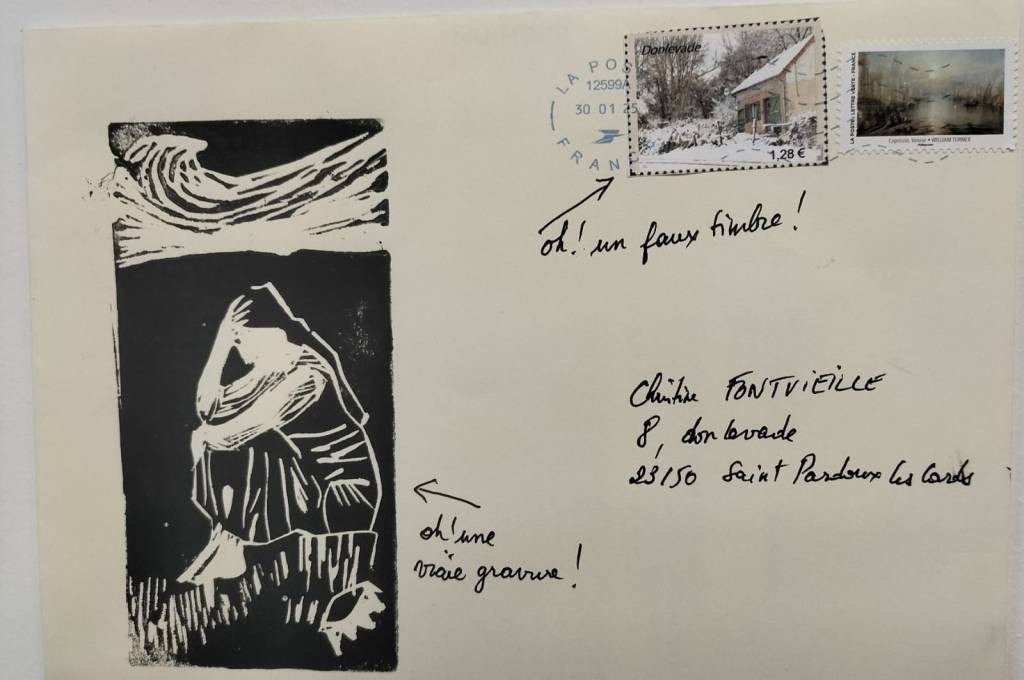 LA POS
12599A
30 01 25
FRAN
Donlevade
1,28 €
LA POSTE - LETTRE VERTE - FRANCE
Capriccio, Venise • WILLIAM TURNER
oh! un faux timbre!
Christine FONTVIEILLE
8, donlevade
23150 Saint Pardoux les Cards
oh! une
vraie gravure!